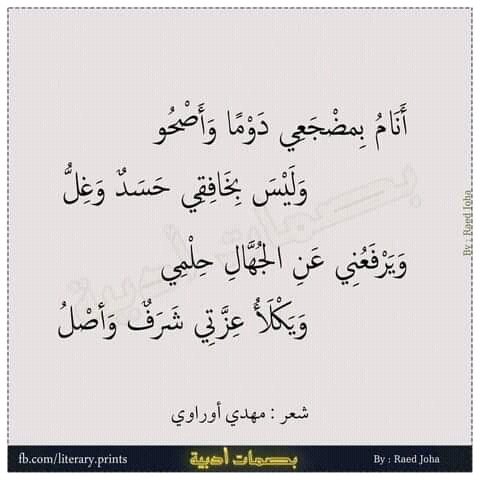 أَنَامُ بِمضْجَعِي دَوْمًا وَأَصْحُو
وَلَيْسَ بِخَافِقِي حَسَدٌ وَغِلُّ
وَيَرْفَعُنِي عَنِ الجُهَّالِ حِلْمِي
وَيَكْلَأُ عِزَّتِي شَرَفٌ وَأصْلُ
شعر : مهدي أوراوي
بصمات أدبية
By : Raed Joha
fb.com/literary.prints
بصمات أدبية
By : Raed Joha